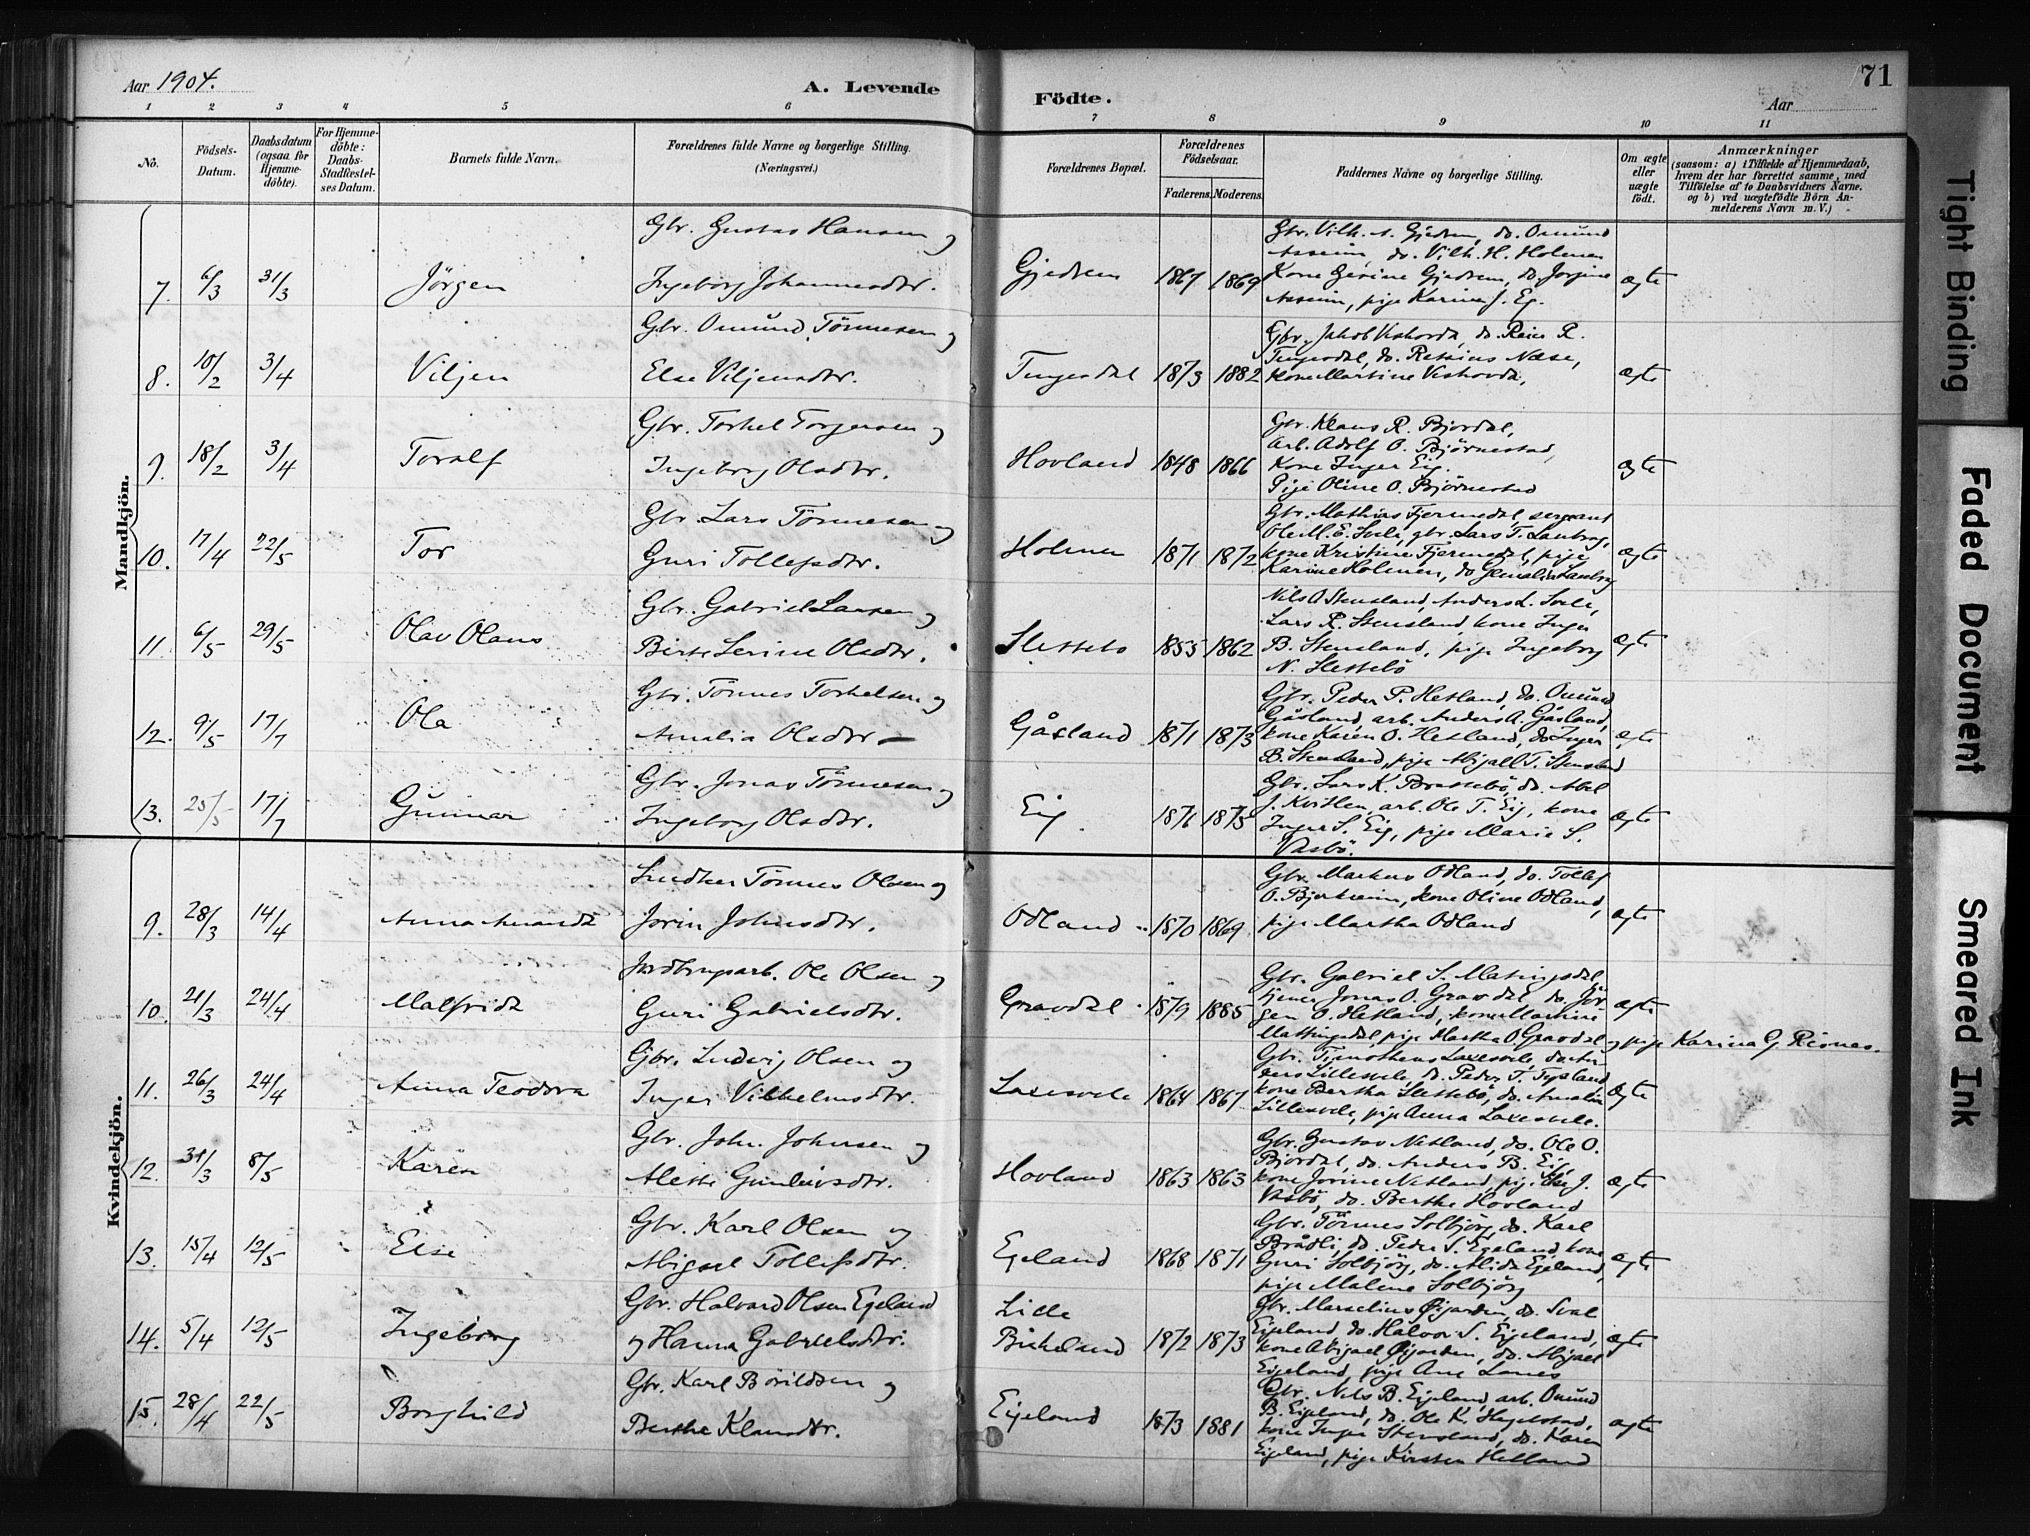 Aar 1904.
A. Levende
Födte.
71
Aar
1 2 3 4 5 6 7 8 9 10 11
No.
Födsels-Datum.
Daabsdatum (ogsaa for Hjemme-döbte).
For Hjemme-döbte: Daabs-Stadfestel-ses Datum.
Barnets fulde Navn.
Forældrenes fulde Navne og borgerlige Stilling.
(Næringsvei.)
Forældrenes Bopæl.
Forældrenes Födselsaar.
Faderens. Moderens.
Faddernes Navne og borgerlige Stilling.
Om ægte eller uægte födt.
Anmærkninger
(saasom: a) i Tilfælde af Hjemmedaab,
hvem der har forrettet samme, med
Tilföielse af to Daabsvidners Navne,
og b) ved uægtefödte Börn An-
melderens Navn m. V.)
Mandkjön.
Gbr. Gustav Hansen og
7. 6/3 31/3 Jörgen Ingeborg Johannesdtr. Gjedrem 1867 1869 ægte
Gbr. Vilh. A. Gjedrem, do. Omund
Asseim, do. Vilh. H. Holmen
Kone Serine Gjedrem, do. Jorgine
Asseim, pige Karine J. Eg.
Gbr. Omund Tönnesen og
8. 10/2 3/4 Viljen Else Viljensdtr. Tengesdal 1873 1882 ægte
Gbr. Jakob Veshovda, do. Reier R.
Tengesdal, do. Rasmus Næse,
Kone Martine Veshovda,
Gbr. Torkel Torgersen og
9. 18/2 3/4 Toralf Ingeborg Olsdtr. Hovland 1848 1866 ægte
Gbr. Klaus R. Bjordal,
Arb. Adolf O. Björnestad,
Kone Inger Eig.
Pige Oline O. Björnestad
Gbr. Lars Tönnesen og
10. 17/4 22/5 Tor Guri Tollefsdtr. Holmen 1871 1872 ægte
Gbr. Mathias Fjermedal, sergeant
Ole M. E. Svele, gbr. Lars T.
kone Kristine Fjermedal, pige
Karine Holmen, do
Gbr. Gabriel Larsen og
11. 6/5 29/5 Olav Olaus Berte Serine Olsdtr. Slettebö 1853 1862 ægte
Nils O Stensland, Anders L. Svele,
Lars R. Stensland, kone Inger
B. Stensland, pige Ingeborg
N. Slettebö
Gbr. Tönnes Torkelsen og
12. 9/5 17/7 Ola Amalia Olsdtr. Gåsland 1871 1873 ægte
Gbr. Peder P. Hetland, do. Omund
Gåsland, arb. Anders A. Gåsland,
kone Karen O. Hetland, do. Inger
B. Stensland, pige Abigael T. Stensland
Gbr. Jonas Tönnesen og
13. 25/5 17/7 Gunnar Ingeborg Olsdtr. Eig 1876 1875 ægte
Gbr. Lars K. Brattebö, do. Abel
J. Kvitlen, arb. Ole T. Eig, kone
Inger S. Eig, pige Marie S.
Vasbö.
Kvindekjön.
Snedker Tönnes Olsen og
9. 28/3 14/4 Anna Amanda Jorin Johnsdtr. Odland 1870 1869 ægte
Gbr. Markus Odland, do. Tollef
O. Bjerkreim, kone Oline Odland,
pige Martha Odland
Jordbrugsarb. Ole Olsen og
10. 21/3 24/4 Malfrida Guri Gabrielsdtr. Gravdal 1879 1885 ægte
Gbr. Gabriel S. Matingsdal
tjener Jonas O. Gravdal, do. Jör-
gen O. Hetland, kone Martine
Mattingsdal, pige Martha O Gravdal og pige Karina G. Risnes.
Gbr. Ludvig Olsen og
11. 26/3 24/4 Anna Teodora Inger Vilhelmsdtr. Laxesvele 1864 1867 ægte
Gbr. Timotheus Laxesvele, do An-
ders Lillesvele, do. Peder T. Tysland
kone Bertha Slettebö, do. Amalia
Lillesvele, pige Anna Laxesvele.
Gbr. John Johnsen og
12. 31/3 8/5 Karen Alette Gunleivsdtr. Hovland 1863 1863 ægte
Gbr. Gustav Netland, do. Ole O.
Bjordal, do. Anders B. Eig,
kone Jorine Netland, pige Else J.
Vasbö, do. Berthe Hovland
Gbr. Karl Olsen og
13. 15/4 12/5 Else Abigael Tollefsdtr. Egeland 1868 1871 ægte
Gbr. Tönnes Solbjörg, do. Karl
Brådli, do. Peder S. Egeland, kone
Guri Solbjörg, do. Alida Egeland,
pige Malene Solbjörg
Gbr. Halvard Olsen Egeland
14. 5/4 12/5 Ingeborg og Hanna Gabrielsdtr. Lille Birkeland 1872 1873 ægte
Gbr. Marselius Öigarden, do. Sval
Eigeland, do. Halvor S. Eigeland,
kone Abigael Öigarden, do. Abigael
Eigeland, pige Ane Lones
Gbr. Karl Börildsen og
15. 28/4 22/5 Borghild Berthe Klausdtr. Eigeland 1873 1881 ægte
Gbr. Nils B. Eigeland, arb. Omund
B. Eigeland, do. Ole K. Hegelstad,
kone Inger Stensland, do. Karen
Eigeland, pige Kirsten Hetland
Tight Binding
Faded Document
Smeared Ink